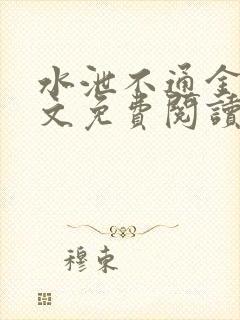 水泄不通全
文免費閱讀
穆束